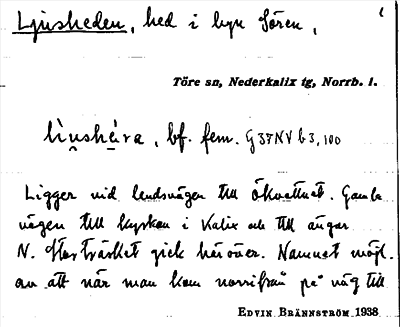 Ljusheden, hed i byn Sören,
Töre sn, Nederkalix tg, Norrb. l.
bf. fem. G 37 NV b 3, 100
Ligger vid landsvägen till Ökvattnet. Gamla
vägen till kyrkan i Kalix och till ängar
N. träsket gick häröver. Namnet möjl.
av att när man kom norrifrån på väg till
EDVIN BRÄNNSTRÖM 1938